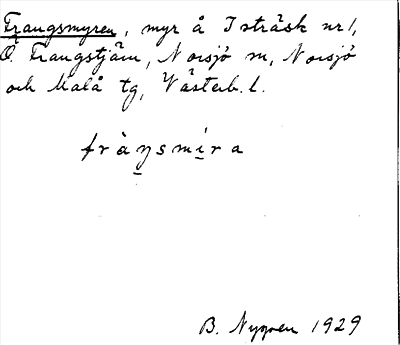 Frangsmyren, myr å Isträsk nr 1,
Ö. Frangstjärn, Norsjö sn, Norsjö
och Malå tg, Västerb. l.
fràŋsmira
B. Nygren 1929